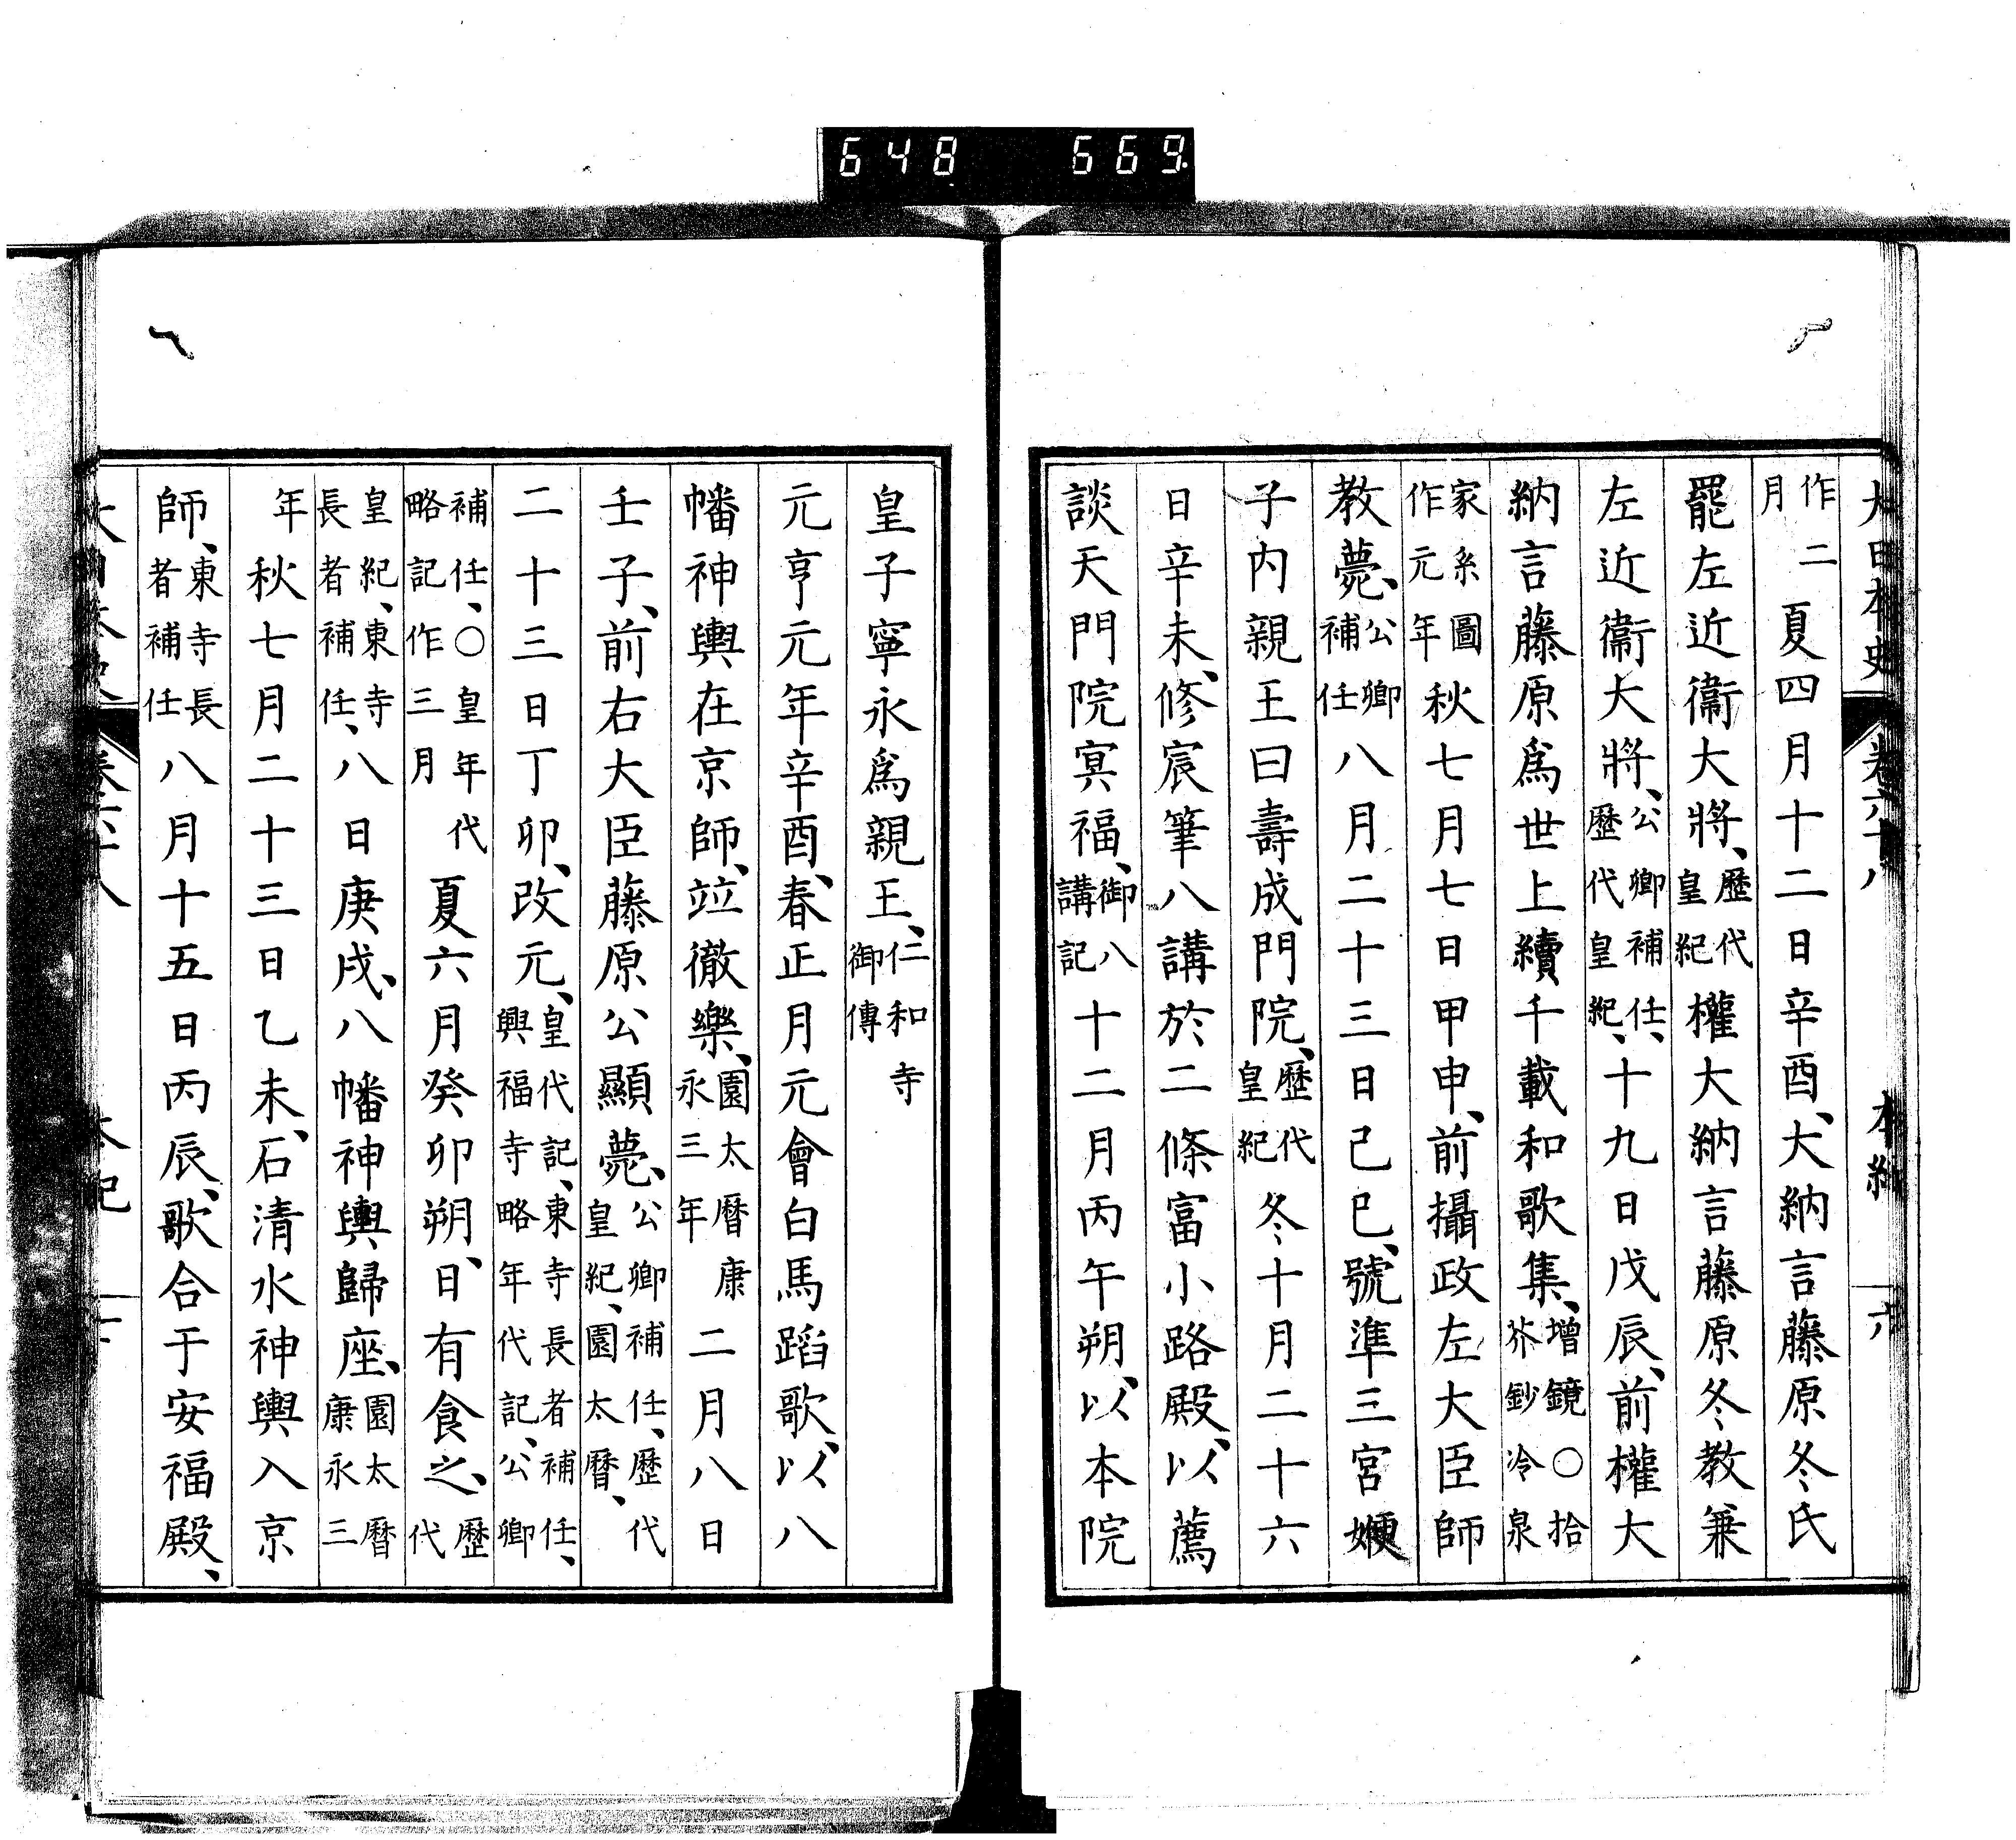 648 669
大日本史 卷六十八 本紀 六
作二月夏四月十二日辛酉、大納言藤原冬氏
罷左近衞大將、歷代皇紀權大納言藤原冬教兼
左近衞大將、公卿補任、歷代皇紀、十九日戊辰、前權大
納言藤原爲世上續千載和歌集、增鏡○拾芥鈔冷泉
家系圖作元年秋七月七日甲申、前攝政左大臣師
教薨、公卿補任八月二十三日己巳、號準三宮媖
子内親王曰壽成門院、歷代皇紀冬十月二十六
日辛未、修宸筆八講於二條富小路殿、以薦
談天門院冥福、御八講記十二月丙午朔、以本院
皇子寧永爲親王、仁和寺御傳
元亨元年辛酉、春正月元會白馬蹈歌、以八
幡神輿在京師、竝徹樂、園太曆康永三年二月八日
壬子、前右大臣藤原公顯薨、公卿補任、歷代皇紀、園太曆、
二十三日丁卯、改元、皇代記、東寺長者補任、興福寺略年代記、公卿
補任、○皇年代略記作三月夏六月癸卯朔、日有食之、歷代
皇紀、東寺長者補任、八日庚戌、八幡神輿歸座、園太曆康永三
年秋七月二十三日乙未、石清水神輿入京
師、東寺長者補任八月十五日丙辰、歌合于安福殿、